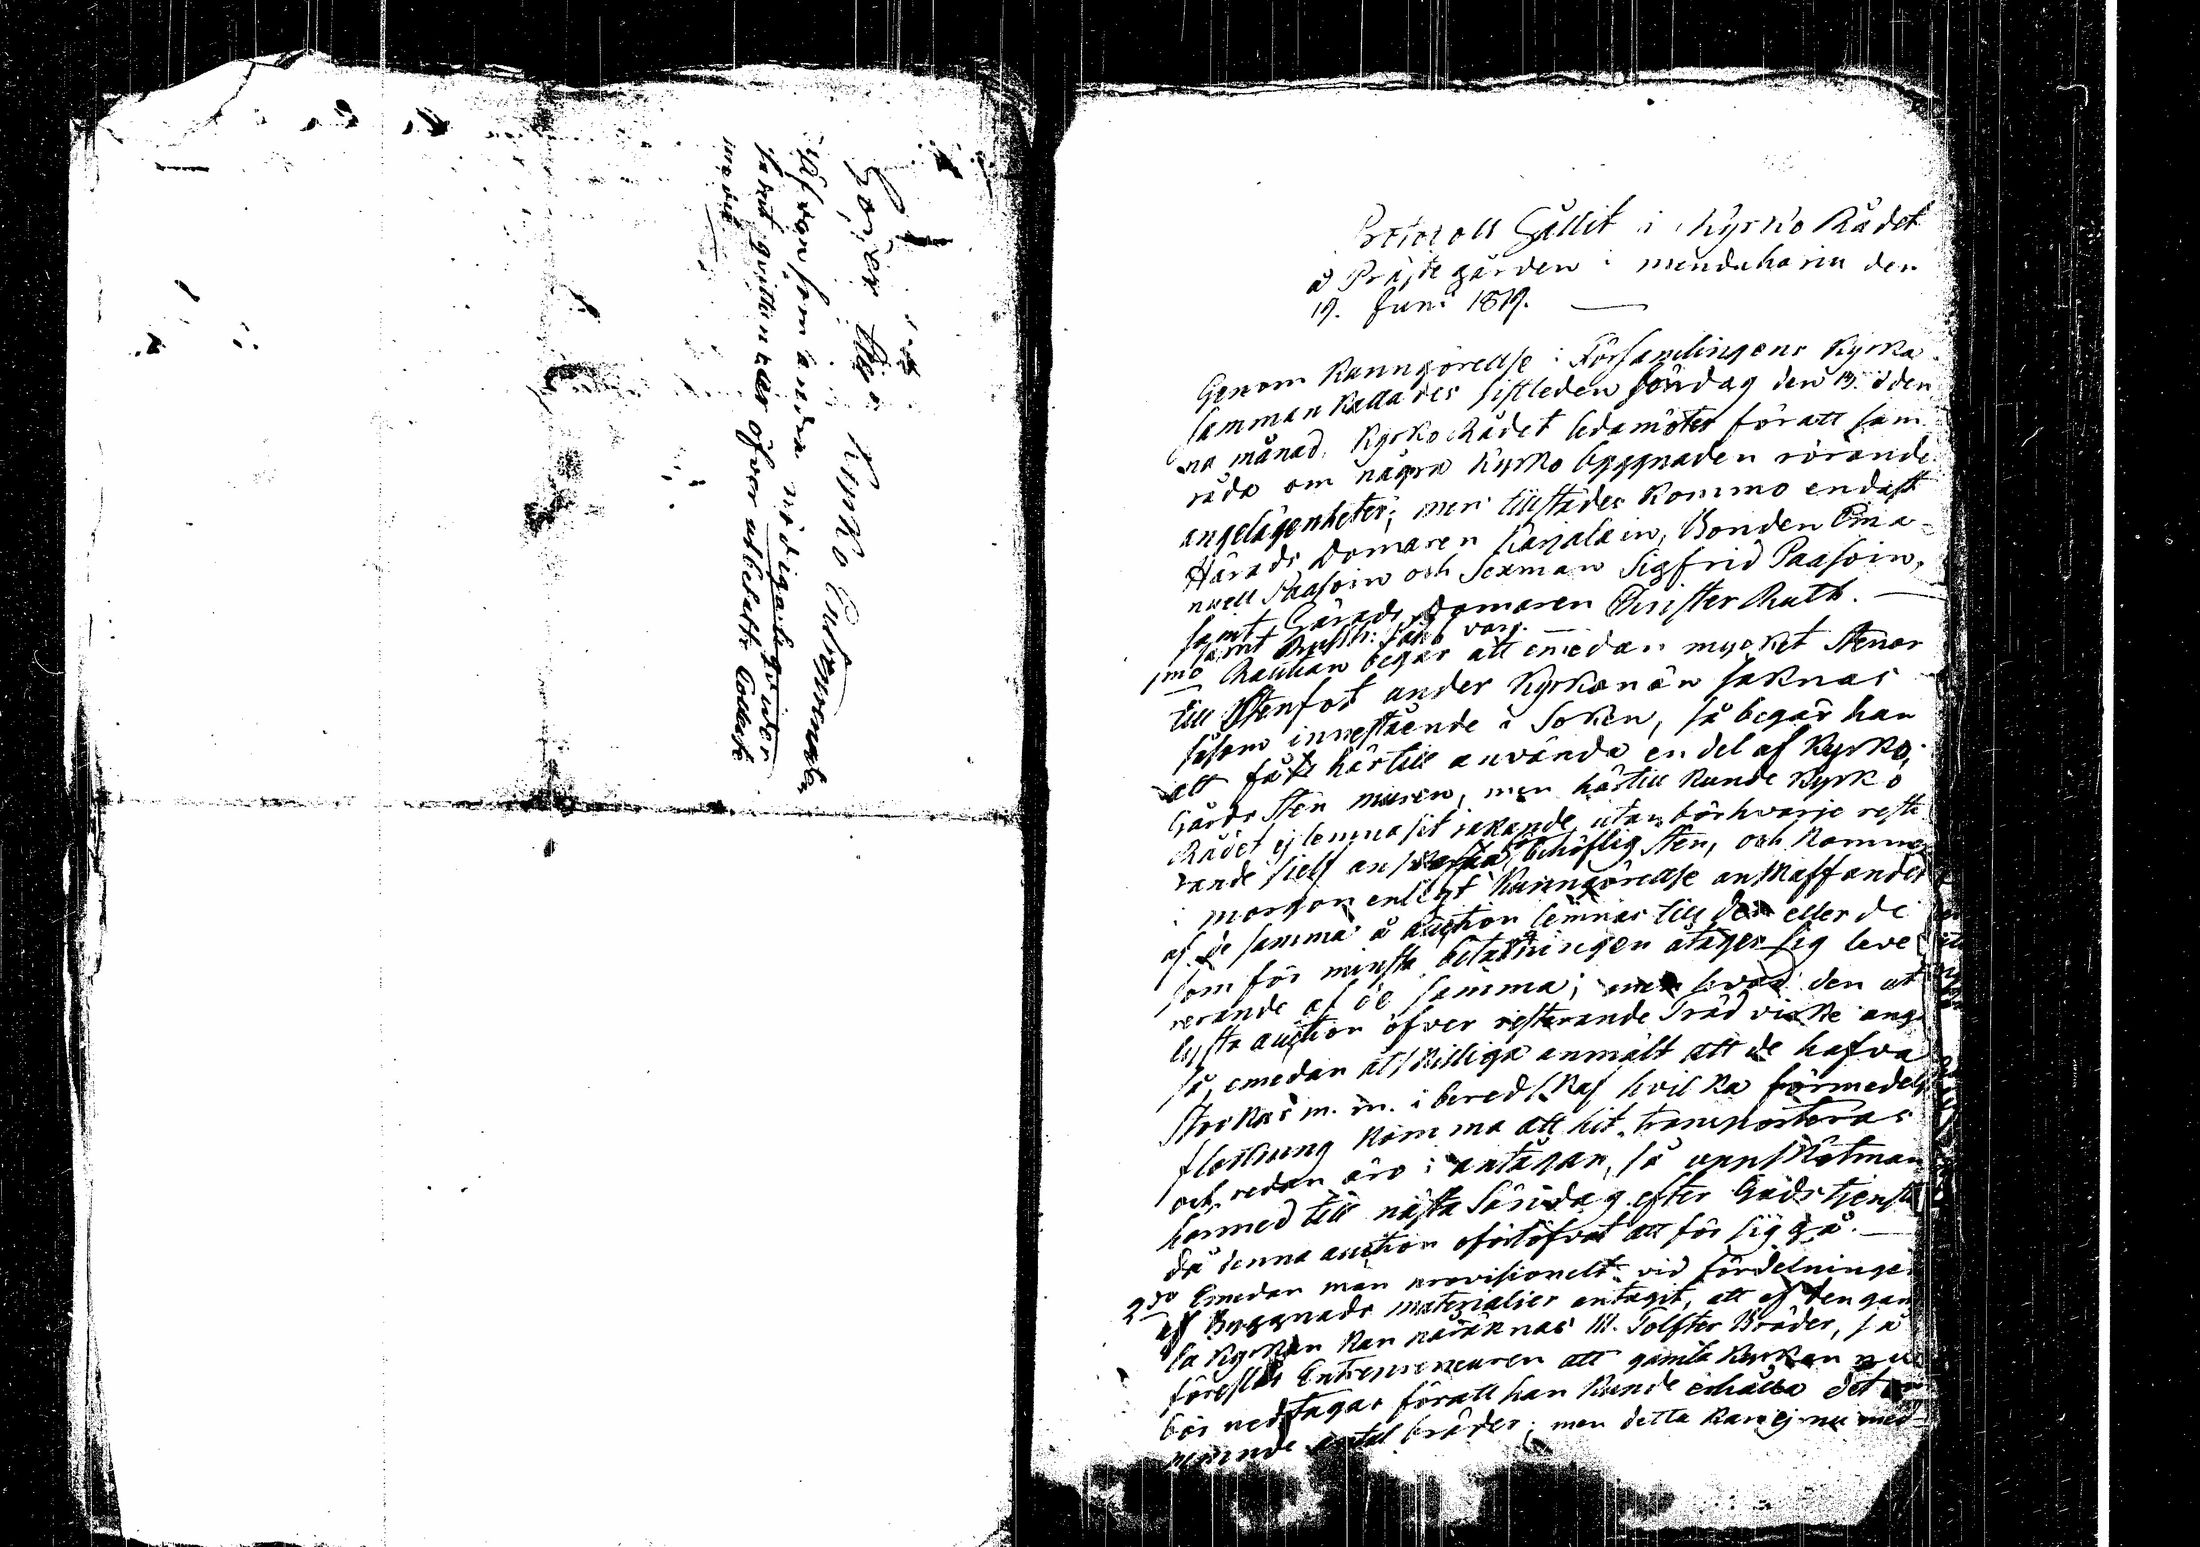 Kyrko Entreprenad
Åfvensom andra nödiga
samt qvittenser öfver utbetalte
medel
Protocoll hållit i Kyrko Rådet
å Prästegården i Menduharju den
19. Juni 1819.
Genom Kunngörelse i Församlingens Kyrka
samman kallades sistleden Söndag den 13. i den
na månad, Kyrko Rådet ledamöter för att sam
råda om några Kyrko byggnaden rörande
angelägenheter; men tillstädes kommo endast
Härads Domaren Karjalain, Bonden Ema-
nuell Paasoin och Sexman Sigfrid Paasoin,
samt Härads Domaren Christer Rutb.
samt Jakob
1mo Rauhan begär att emedan mycket stenar
till Stenfot under Kyrkan än saknas
såsom innestående i Soken, så begär han
att få härtill använda en del af Kyrko
Gårds Sten muren, men härtill kunde Kyrko
Rådet ej lemna sit jakande, utan bör hvarje reste
rande sjelf anskaffa behöflig sten, och kommer
i morgon enligt Kunngörelse anskaffandet
af de samma å auction lemnas till den eller de
som för minsta betalningen åtager sig leve
rerande af de samma; men hvad den ut
lysta auction öfver resterande Trädvirke ang
så, emedan åtskilliga anmält att de hafva
Stockar m. m. i beredskap hvilka förmedelst
flottning komma att hit transporteras
och redan äro i antågan, så uppskötman
härmed till nästa Söndag efter Gudstjenst
då denna auction oförtöfvat att för sig gå.
2do Emedan man provisionelt vid fördelningen
af Byggnads materialier antagit, att af den gam
la Kyrkan kan påräknas 111. Tolfter Bräder, så
föreslår Entrepreneuren att gamla Kyrkan nu
bör nedtagas för att han kunde erhålla det
antal bräder; men detta kan ej nu med-